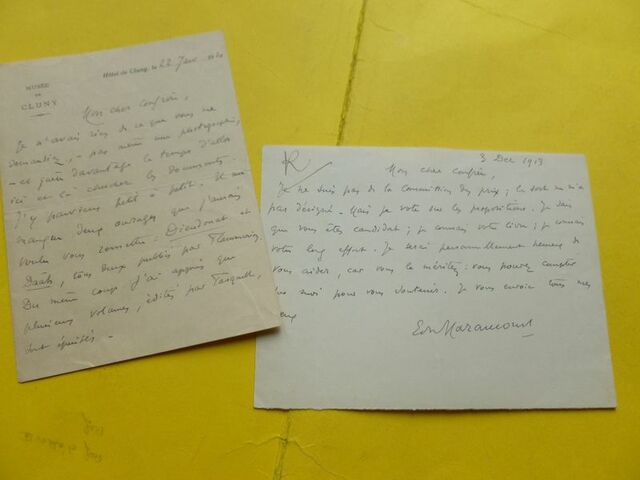 MUSÉE
DE
CLUNY
Hôtel de Cluny, le 22 Janv.
Mon cher confrère,
Je n'avais rien de ce que vous me
demandiez, - pas même une photographie,
- et guère davantage le temps d'aller
ici et là chercher les documents.
J'y parviens petit à petit. Il me
manque deux ouvrages que j'aurais
voulu vous remettre : Dieudonat et
Daâh, tous deux publiés par Flammarion.
Du même coup j'ai appris que
plusieurs volumes, édités par Fasquelle,
sont épuisés -
R
3 Dec 1913
Mon cher confrère,
Je ne suis pas de la commission des prix ; le sort ne m'a
pas désigné. Mais je vote sur les propositions. Je sais
que vous êtes candidat ; je connais votre livre ; je connais
votre long effort. Je serai personnellement heureux de
vous aider, car vous le méritez : vous pouvez compter
sur moi pour vous soutenir. Je vous envoie tous mes
vœux
Edm Haraucourt